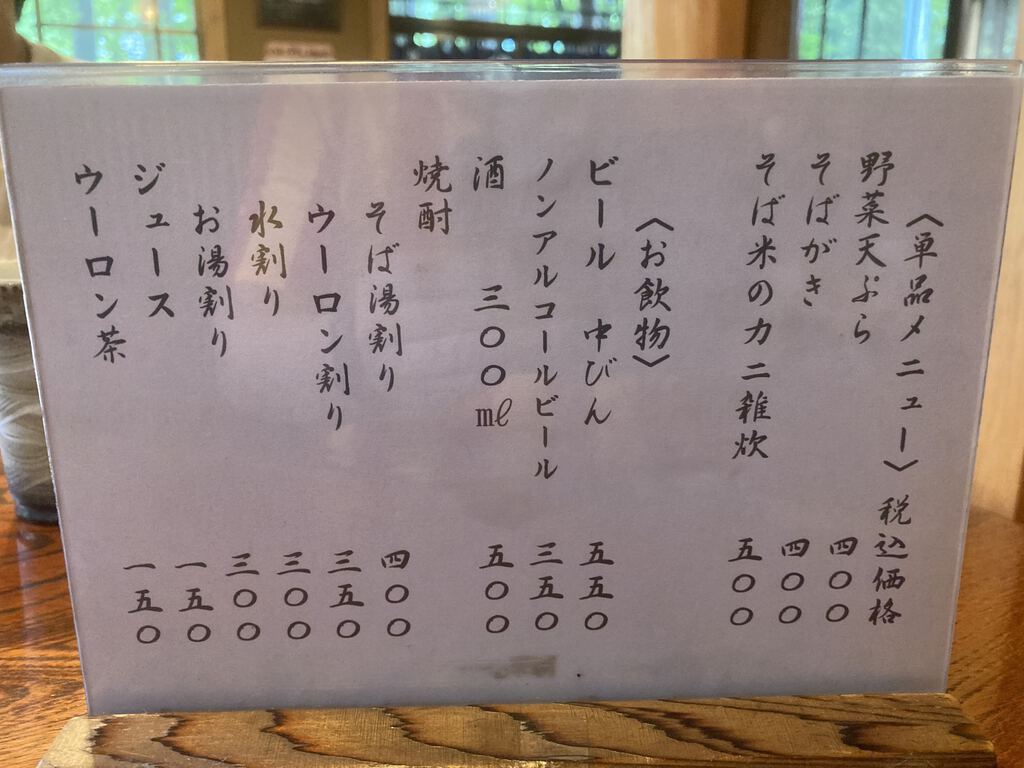 〈単品メニュー〉税込価格
野菜天ぷら 四〇〇
そばがき 四〇〇
そば米のカニ雑炊 五〇〇
〈お飲物〉
ビール 中びん 五五〇
ノンアルコールビール 三五〇
酒 三〇〇㎖ 五〇〇
焼酎
そば湯割り 四〇〇
ウーロン割り 三五〇
水割り 三〇〇
お湯割り 三〇〇
ジュース 一五〇
ウーロン茶 一五〇